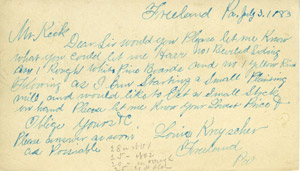 Freeland Pa, July 3. 1883
Mr. Keck
Dear Sir would you Please let me Know
What you Could let me Have No 1 Beveled Siding
Dry 1 Rough White Pine Boards and No 1 yellow Pine
Flooring as I am Starting a Small Plaining
mill, and would like to Get a Small Stock
on hand Please let me Know your Lowest Price &
Oblige Yours &C
Please answer as soon
as Possiable
Louis
Freeland
Pa